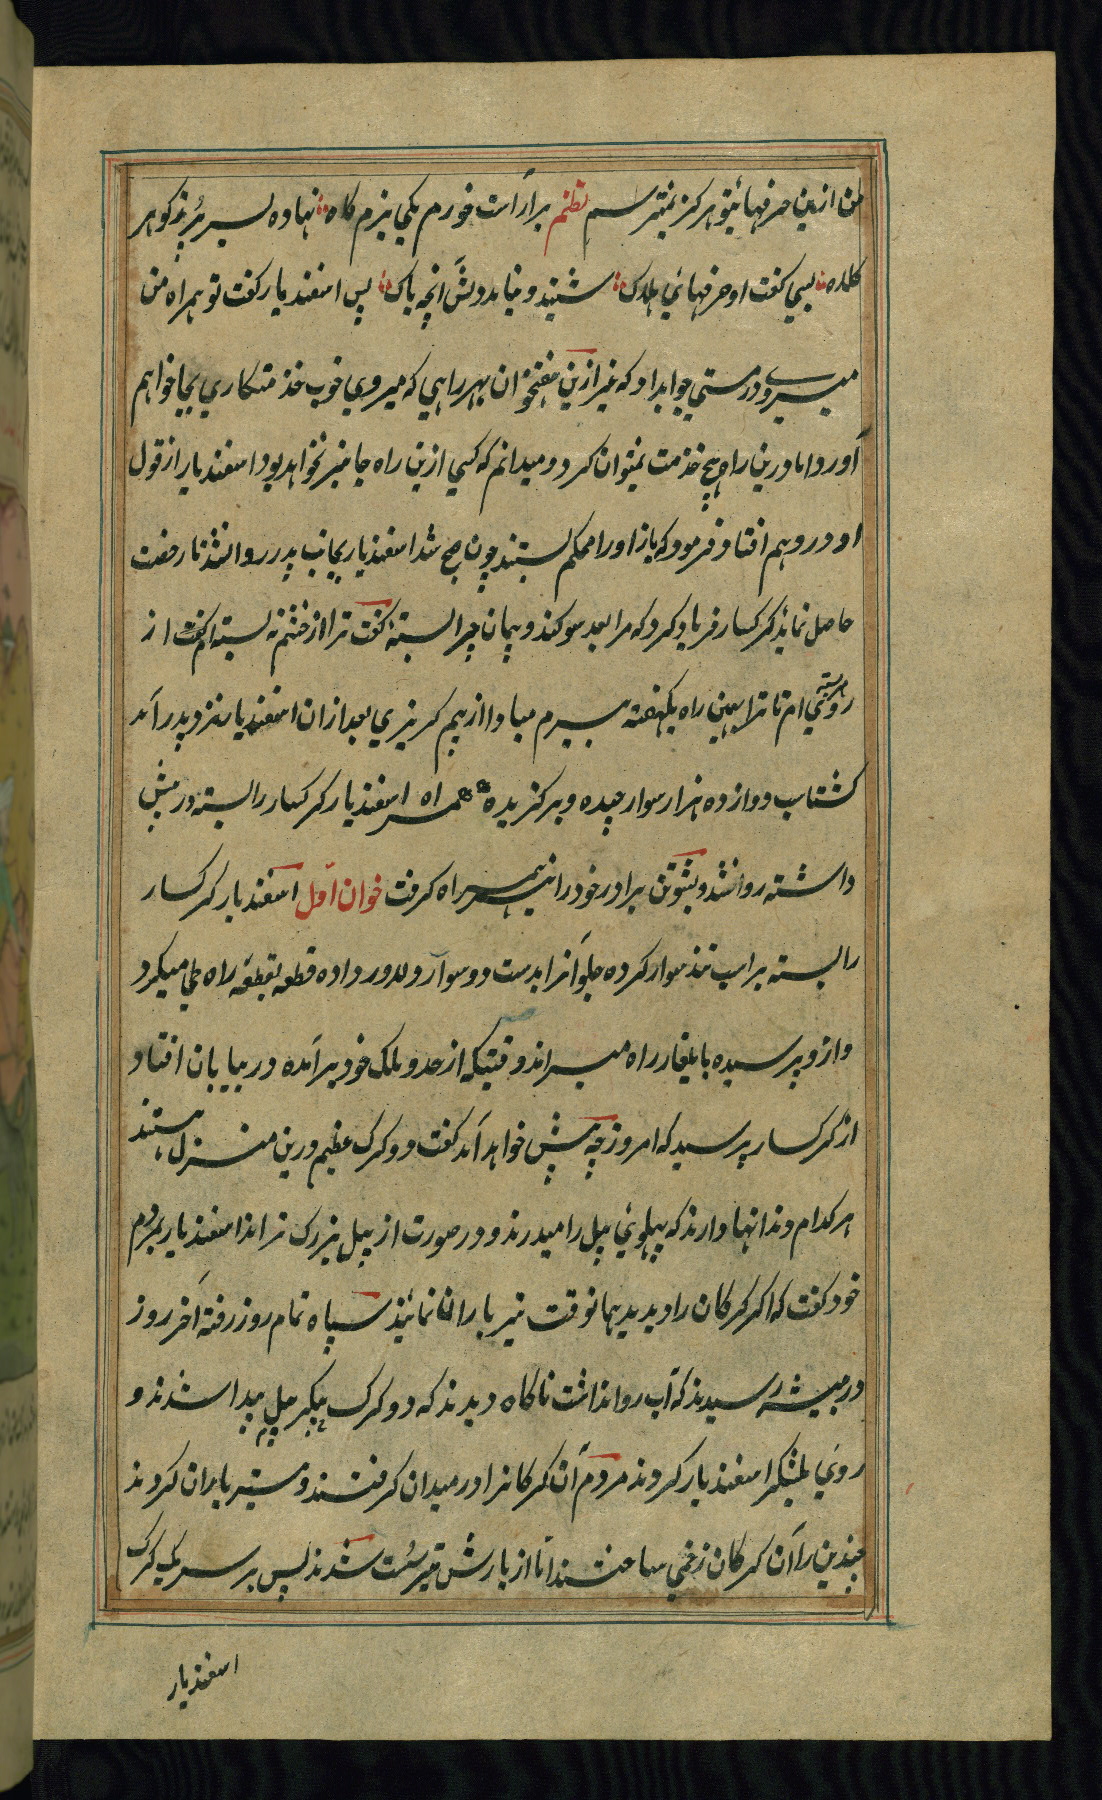 من ازین حرفهائیتو هرکز نمیترسم نظم برآراست خورم یکی بزم کاه نهاده بسر بر ز کوهر
کلاه بسي کفت او حرفهائي هلاک شنید و نیامدوش انچه باک پس اسفندیار کفت تو همراه من
میروي درستي جوابداد که غیر ازین هفتخوان بهر راهي که میروي خوب خذمتکاري بجا خواهم
آورد اما درین راه هیچ خذمت نمیتوان کرد و میدانم که کسي ازین راه جانبر نخواهد بود اسفندیار از قول
او در وهم افتاد فرمود که باز اورا محکم بستند چون صبح شد اسفندیار بجانب پدر روانشد تا رخصت
حاصل نماید کرکسار فریاد کرد که مرا بعد سوکند و پیمان چرا بستۀ کفت ترا از خشم نه بسته ام کفت از
روي ام تا ترا بهمین راه یکهفته ببرم مبادا از بیم کریزي بعد ازان اسفندیار نزد پدر آمد
کشتاسب دوازده هزار سوار چیده و برکزیده همراه اسفندیار کرکسار را بسته در پیش
داشته روانشد و بشوتن برادر خود را نیز همراه کرفت خوان اول اسفندیار کرکسار
را بسته بر اسپ تند سوار کرده جلو آنرا بدست دو سوار دلاور داده قطعه بقطعه راه طي میکرد
و ازو پرسیده با یلغار راه میراند وقتیکه از حدود ملک خود برآمده در بیابان افتاد
از کرکسار پرسید که امروز چه پیش خواهد آمد کفت دو کرک عظیم درین منزل هستند
هر کدام دندانها دارند که پهلوئي پیل را میدرند و در صورت از پیل بزرک تر اند اسفندیار بمردم
خود کفت که اکر کرکان را دیدید بهمانوقت تیر باران نمائید سپاه تمام روز رفته آخر روز
در بیشه رسیدند که آب روانداشت ناکاه دیدند که دو کرک پیکر پیل پیدا شدند و
روئي بلشکر اسفندیار کردند مردم آن کرکانرا در میدان کرفتند و تیر باران کردند
چندین را آن کرکان زخمي ساختند اما از بارش تیر سست شدند پس بر سر یک کرک
اسفندیار